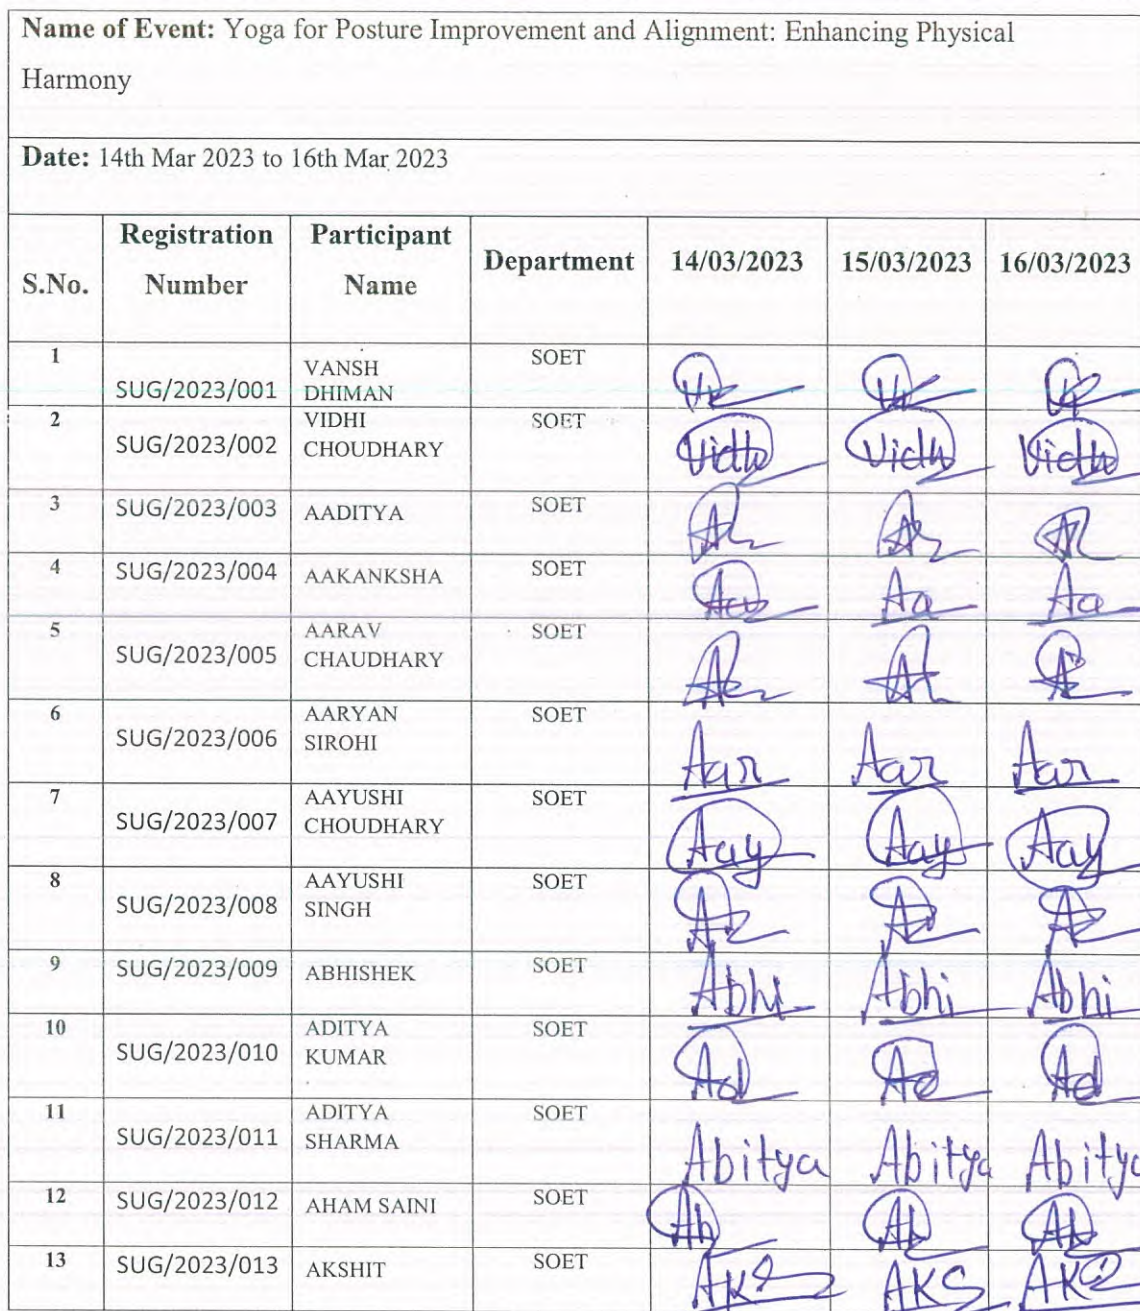 Name of Event: Yoga for Posture Improvement and Alignment: Enhancing Physical
Harmony
Date: 14th Mar 2023 to 16th Mar 2023
S.No. Registration Number Participant Name Department 14/03/2023 15/03/2023 16/03/2023
1 SUG/2023/001 VANSH DHIMAN SOET
2 SUG/2023/002 VIDHI CHOUDHARY SOET Vidh Vidh Vidh
3 SUG/2023/003 AADITYA SOET
4 SUG/2023/004 AAKANKSHA SOET Aa Aa
5 SUG/2023/005 AARAV CHAUDHARY SOET
6 SUG/2023/006 AARYAN SIROHI SOET Aar Aar Aar
7 SUG/2023/007 AAYUSHI CHOUDHARY SOET Aay Aay Aay
8 SUG/2023/008 AAYUSHI SINGH SOET
9 SUG/2023/009 ABHISHEK SOET Abhi Abhi Abhi
10 SUG/2023/010 ADITYA KUMAR SOET Ad Ad Ad
11 SUG/2023/011 ADITYA SHARMA SOET Abitya Abitya Abitya
12 SUG/2023/012 AHAM SAINI SOET Ah Ah Ah
13 SUG/2023/013 AKSHIT SOET AKS AKS AKS